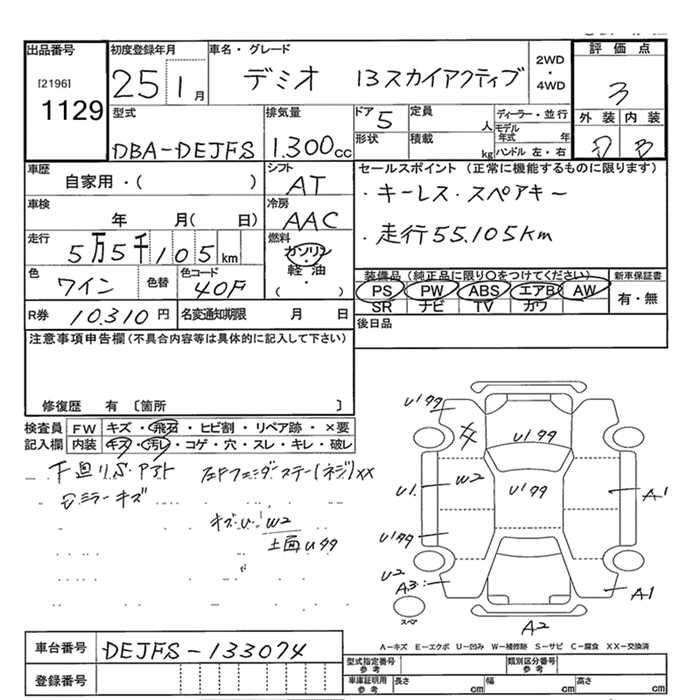 出品番号
[2196]
1129
初度登録年月
25 1月
車名・グレード
デミオ 13スカイアクティブ
2WD
・
4WD
評価点
3
外装 内装
D B
型式
DBA-DEJFS
排気量
1.300cc
ドア 5
形状
定員 人
積載 kg
ディーラー・並行
モデル年式 年
ハンドル 左・右
車歴
自家用・( )
シフト
AT
セールスポイント (正常に機能するものに限ります)
・キーレス・スペアキー
・走行55.105km
車検
年 月( 日)
冷房
AAC
走行
5万5千105km
燃料
ガソリン
・
軽油
( )
色
ワイン
色替
色コード
40F
装備品 (純正品に限り○をつけてください)
PS PW ABS エアB AW
SR ナビ TV カワ
新車保証書
有・無
R券 10.310円
名変通知期限 月 日
後日品
注意事項申告欄 (不具合内容等は具体的に記入して下さい)
修復歴 有 〔箇所 〕
検査員 FW キズ・飛石・ヒビ割・リペア跡・×要
記入欄 内装 キズ・汚レ・コゲ・穴・スレ・キレ・破レ
下廻りS.アト 左Fフェンダーステー(ネジ)XX
ミラーキズ
キズ・U W2
U99
U199
XX
U199
U1.
W2
U199
A1
U199
U2
A3
A1
スペア
A2
A-キズ E-エクボ U-凹み W-補修跡 S-サビ C-腐食 XX-交換済
車台番号 DEJFS-133074
登録番号
型式指定番号 参考
類別区分番号 参考
車庫証明用 参考 長さ cm 幅 cm 高さ cm